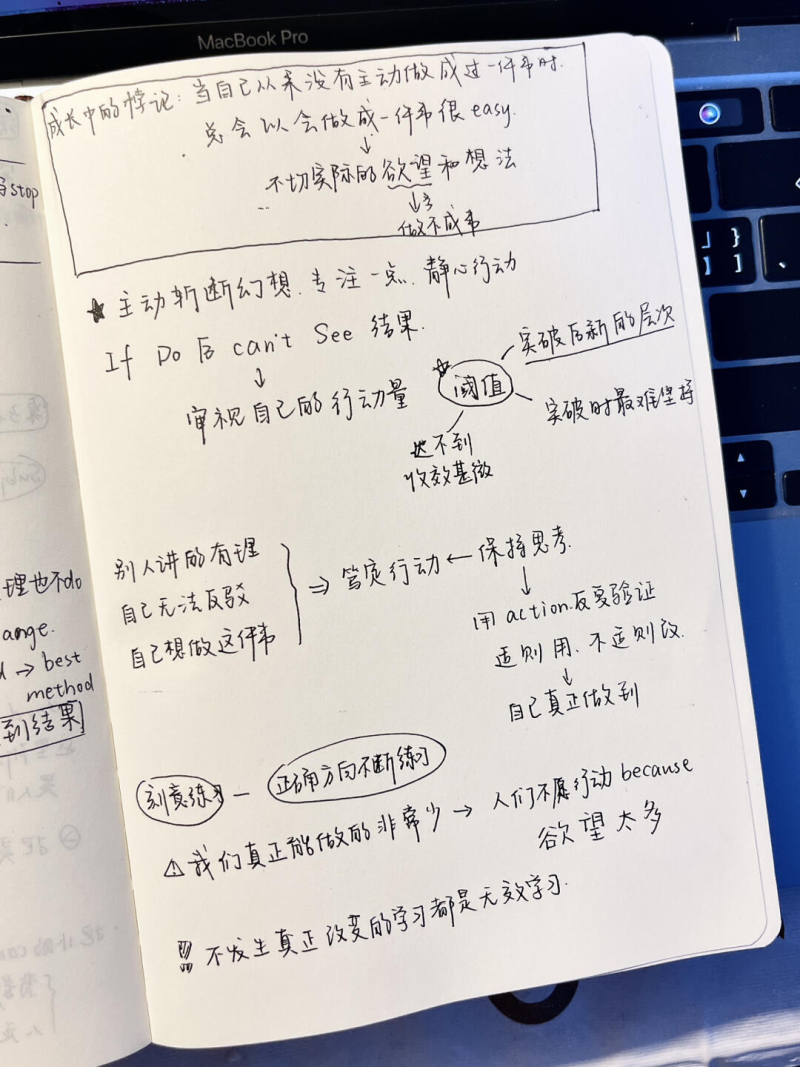 MacBook Pro
成长中的悖论：当自己从来没有主动做成过一件事时.
总会以会做成一件事很easy.
↓
不切实际的欲望和想法
↓
做不成事
★ 主动斩断幻想、专注一点、静心行动
If Do 后 can't See 结果.
↓
审视自己的行动量
阈值
突破后新的层次
突破时最难坚持
达不到
收效甚微
别人讲的有理
自己无法反驳
自己想做这件事
⇒ 笃定行动 ← 保持思考.
↓
用 action.反复验证
适则用、不适则改.
↓
自己真正做到
刻意练习 — 正确方向不断练习
⚠ 我们真正能做的非常少 → 人们不愿行动 because
欲望太多
!!! 不发生真正改变的学习都是无效学习.
stop
理也不do
ange.
→ best
method
到结果